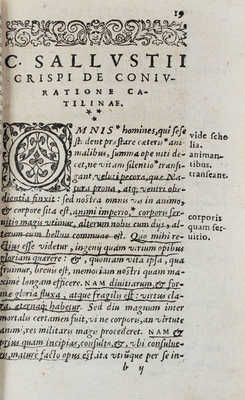 19
C. SALLVSTII
CRISPI DE CONIV-
RATIONE CA-
TILINAE.
OMNIS* homines, qui sese
student præstare cæteris* a-
nimalibus, summa ope niti de-
cet, ne vitam silentio* transi-
gant, veluti pecora, quæ Na-
tura prona, atq; ventri obe-
dientia finxit: sed nostra omnis vis in animo,
& corpore sita est, animi imperio, * corporis ser-
uitio magis vtimur, alterum nobis cum dijs, al-
terum cum belluis commune est. Quo mihi re-
ctius esse videtur, ingenij quàm virium opibus
gloriam quærere: & , quoniam vita ipsa, qua
fruimur, breuis est, memoriam nostri quàm ma-
ximè longam efficere. NAM diuitiarum, & for-
mæ gloria fluxa, atque fragilis est: virtus cla-
ra, æternaq; habetur. Sed diu magnum inter
mortales certamen fuit, vi ne corporis, an virtute
animi, res militaris magis procederet. NAM &
prius quàm incipias, consulto, & , vbi consulue-
ris, maturè facto opus est. ita vtrumque per se in-
b ij
vide scho
lia.
animan-
tibus.
transeant.
corporis
quam ser-
uitio.